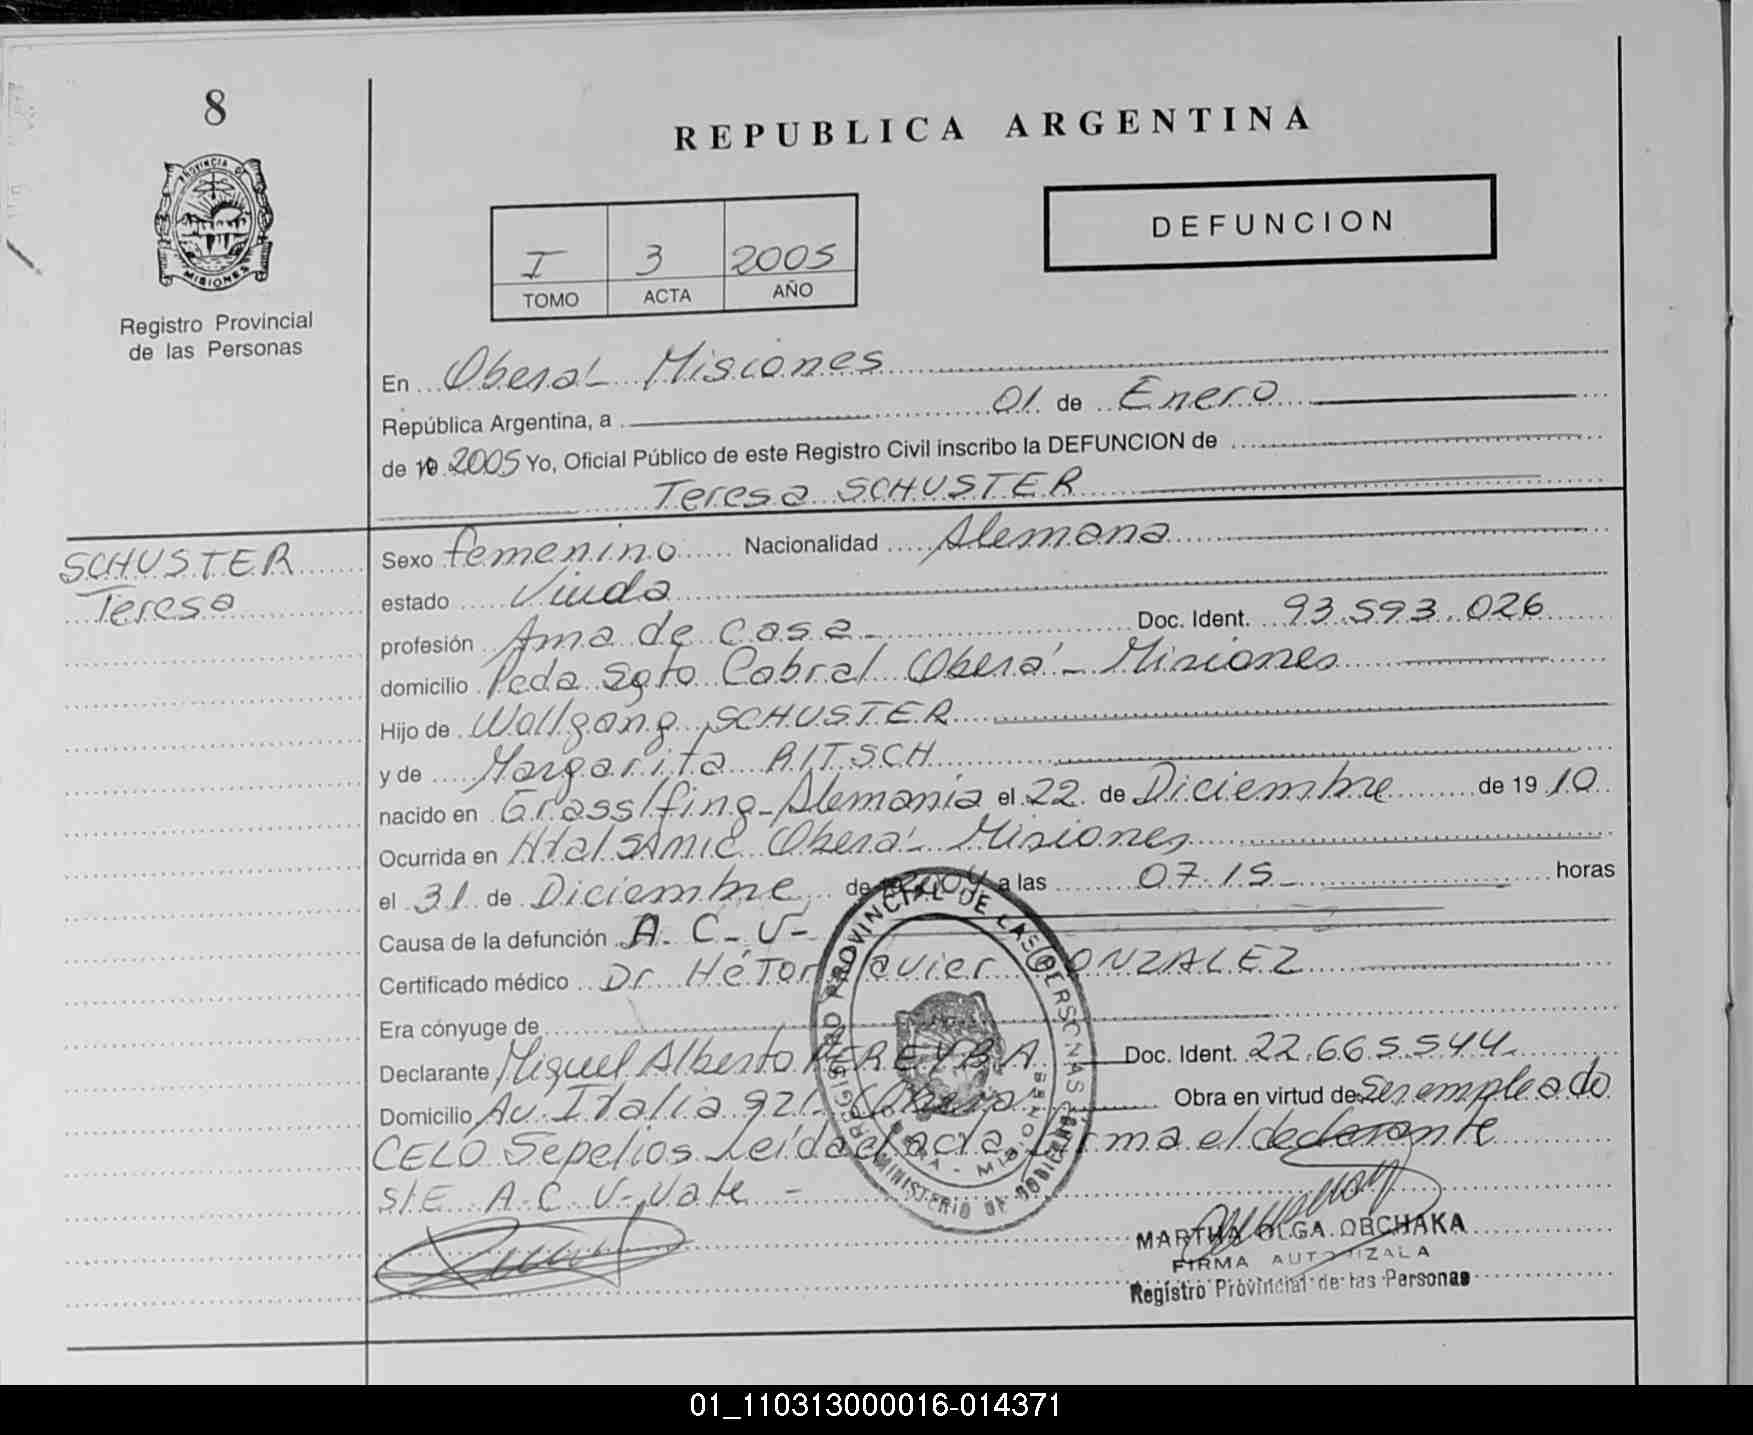 8
PROVINCIA DE
MISIONES
Registro Provincial
de las Personas
REPUBLICA ARGENTINA
I 3 2005
TOMO ACTA AÑO
DEFUNCION
En Oberá - Misiones
República Argentina, a 01 de Enero
de 19 2005 Yo, Oficial Público de este Registro Civil inscribo la DEFUNCION de
Teresa SCHUSTER
SCHUSTER
Teresa
Sexo femenino Nacionalidad Alemana
estado Viuda
profesión Ama de Casa - Doc. Ident. 93.593.026
domicilio Pcda Sgto Cabral Oberá - Misiones
Hijo de Wollgang SCHUSTER
y de Margarita RITSCH
nacido en Grasslfing - Alemania el 22 de Diciembre de 19 10
Ocurrida en Htal SAMIC Oberá - Misiones
el 31 de Diciembre de 2004 a las 07.15 - horas
Causa de la defunción A. C - V -
Certificado médico Dr. HéTor Javier GONZALEZ
Era cónyuge de
Declarante Miguel Alberto PEREYRA Doc. Ident. 22.665.544.
Domicilio Av. Italia 921 - Oberá Obra en virtud de Ser empleado
CELO Sepelios Leída el acta firma el declarante
S/E A - C V -, Vale -
REGISTRO PROVINCIAL DE LAS PERSONAS
MINISTERIO DE GOBIERNO
OBERA - MISIONES
MARTHA OLGA OBCHAKA
FIRMA AUTORIZADA
Registro Provincial de las Personas
01_110313000016-014371